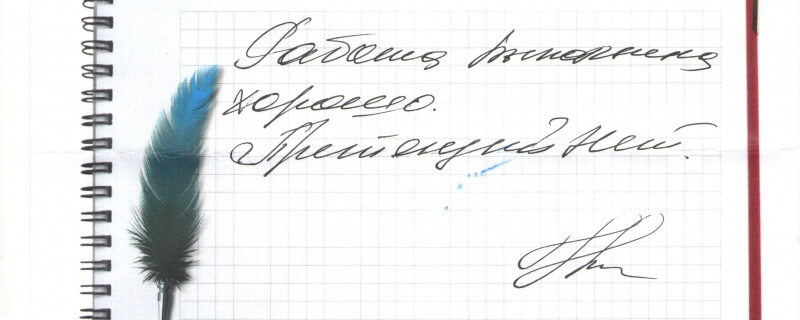 Работа выполнена
хорошо.
Претензий нет.